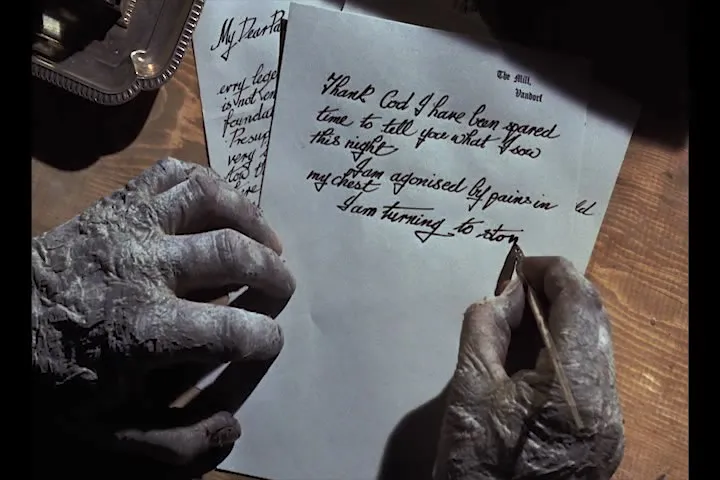 My Dear Pa
erry lege
is not en
foundat
Presu
very
The Mill,
Vandorf
Thank God I have been spared
time to tell you what I saw
this night
I am agonised by pains in
my chest
I am turning to ston